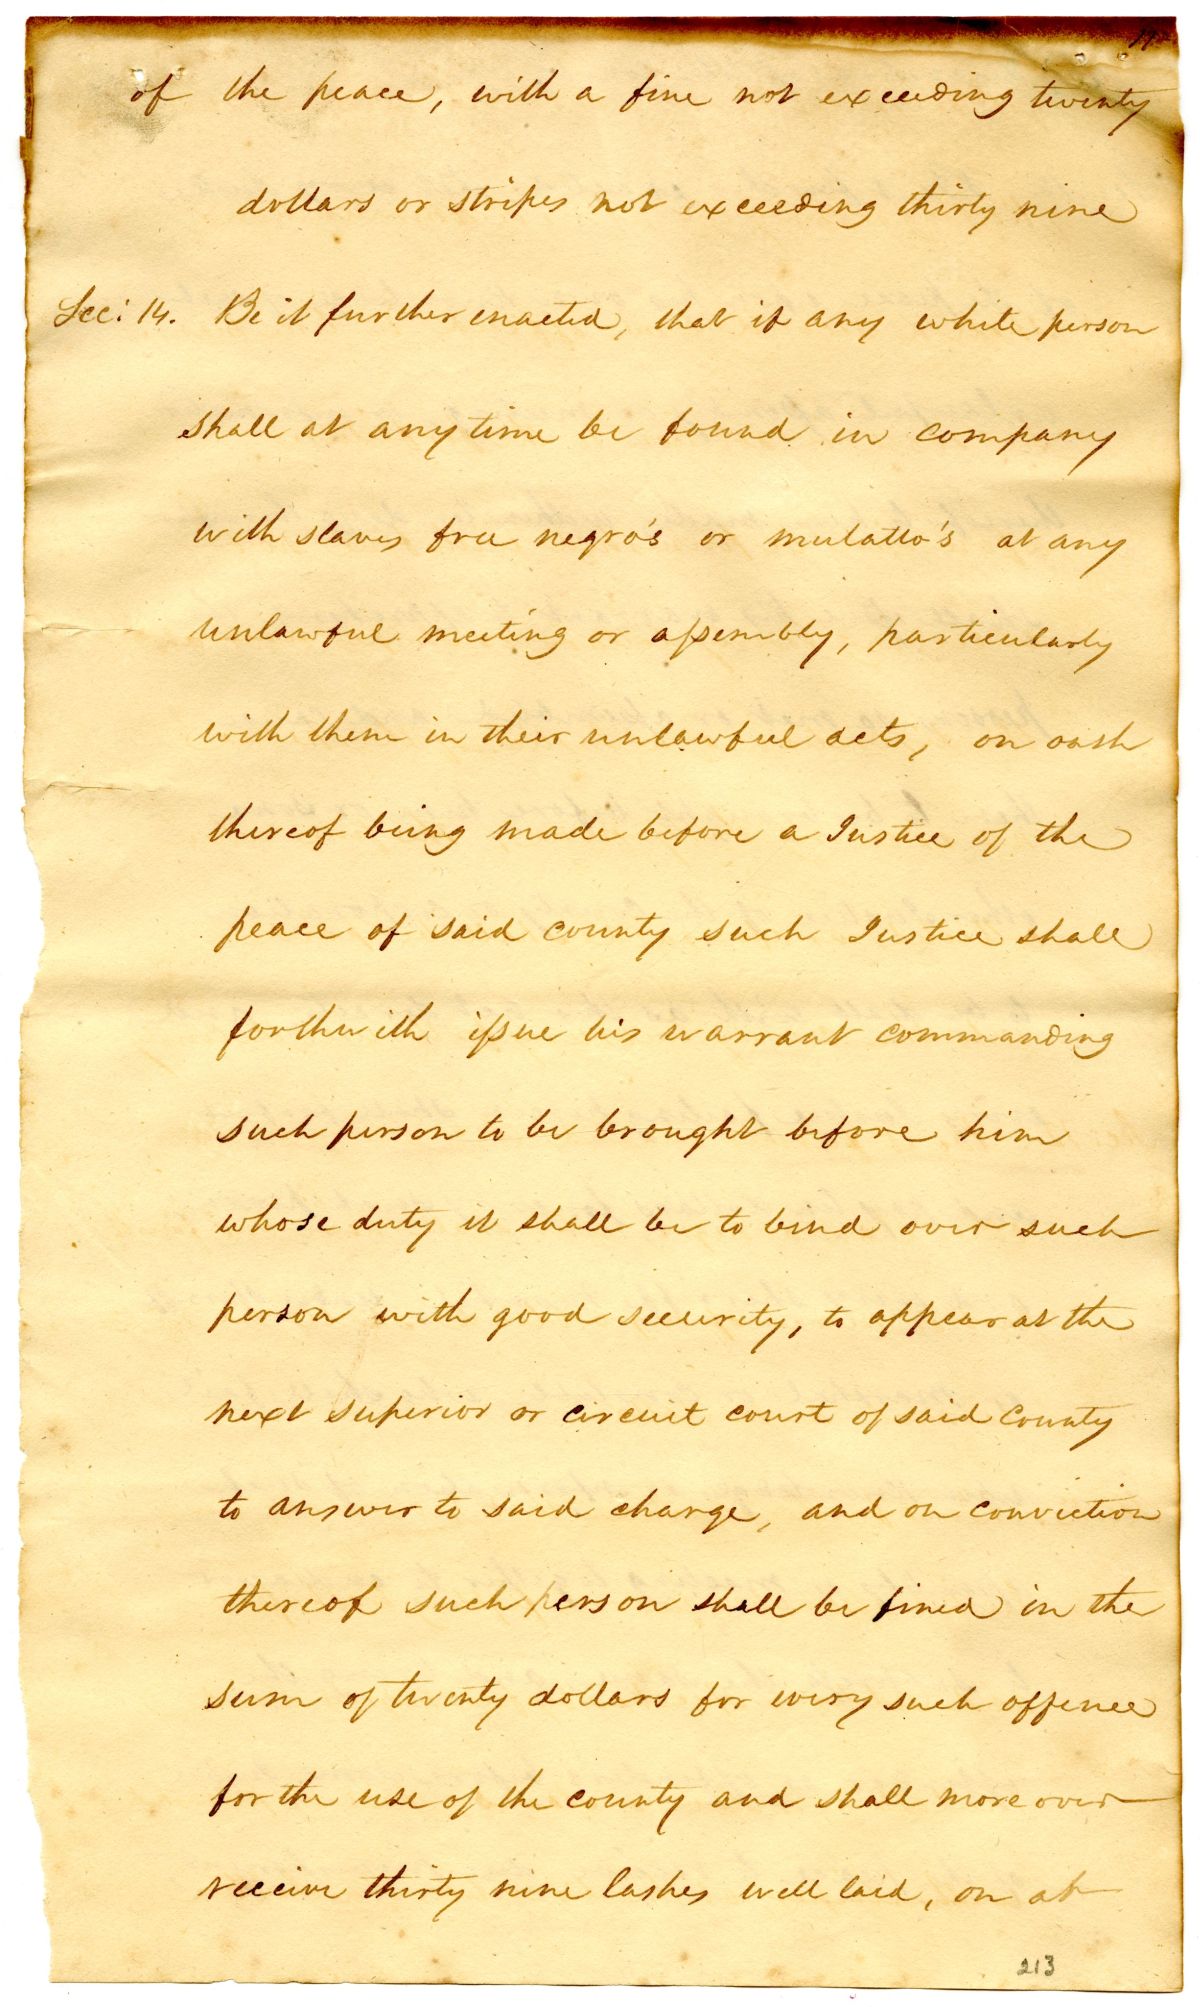 11
of the peace, with a fine not exceeding twenty
dollars or stripes not exceeding thirty nine
Sec: 14. Be it further enacted, that if any white person
shall at any time be found in company
with slaves free negro's or mulatto's at any
unlawful meeting or assembly, particularly
with them in their unlawful acts, on oath
thereof being made before a Justice of the
peace of said county such Justice shall
forthwith issue his warrant commanding
such person to be brought before him
whose duty it shall be to bind over such
person with good security, to appear at the
next superior or circuit court of said county
to answer to said charge, and on conviction
thereof such person shall be fined in the
sum of twenty dollars for every such offence
for the use of the county and shall more over
receive thirty nine lashes well laid, on at
213